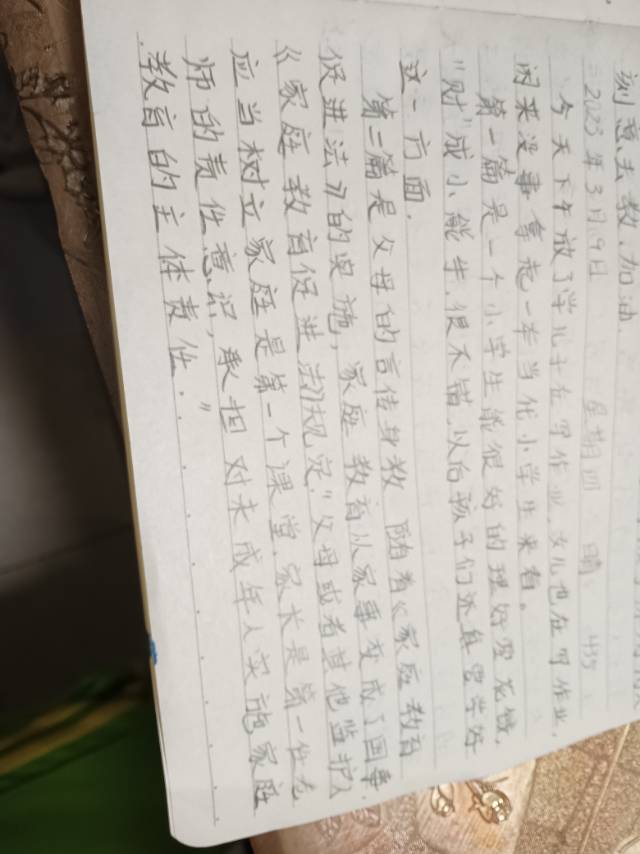 刻意去教，加油．
2023年3月9日 星期四 晴 435
今天下午放了学儿子在写作业，女儿也在写作业，
闲来没事拿起一本当代小学生来看。
第一篇是一个小学生能很好的理好零花钱，
“财”成小能手，很不错，以后孩子们还真要学好
这一方面．
第二篇是父母的言传身教，随着《家庭教育
促进法》的实施，家庭教育从家事变成了国事．
《家庭教育促进法》规定：“父母或者其他监护人
应当树立家庭是第一个课堂，家长是第一任老
师的责任意识，承担对未成年人实施家庭
教育的主体责任．”